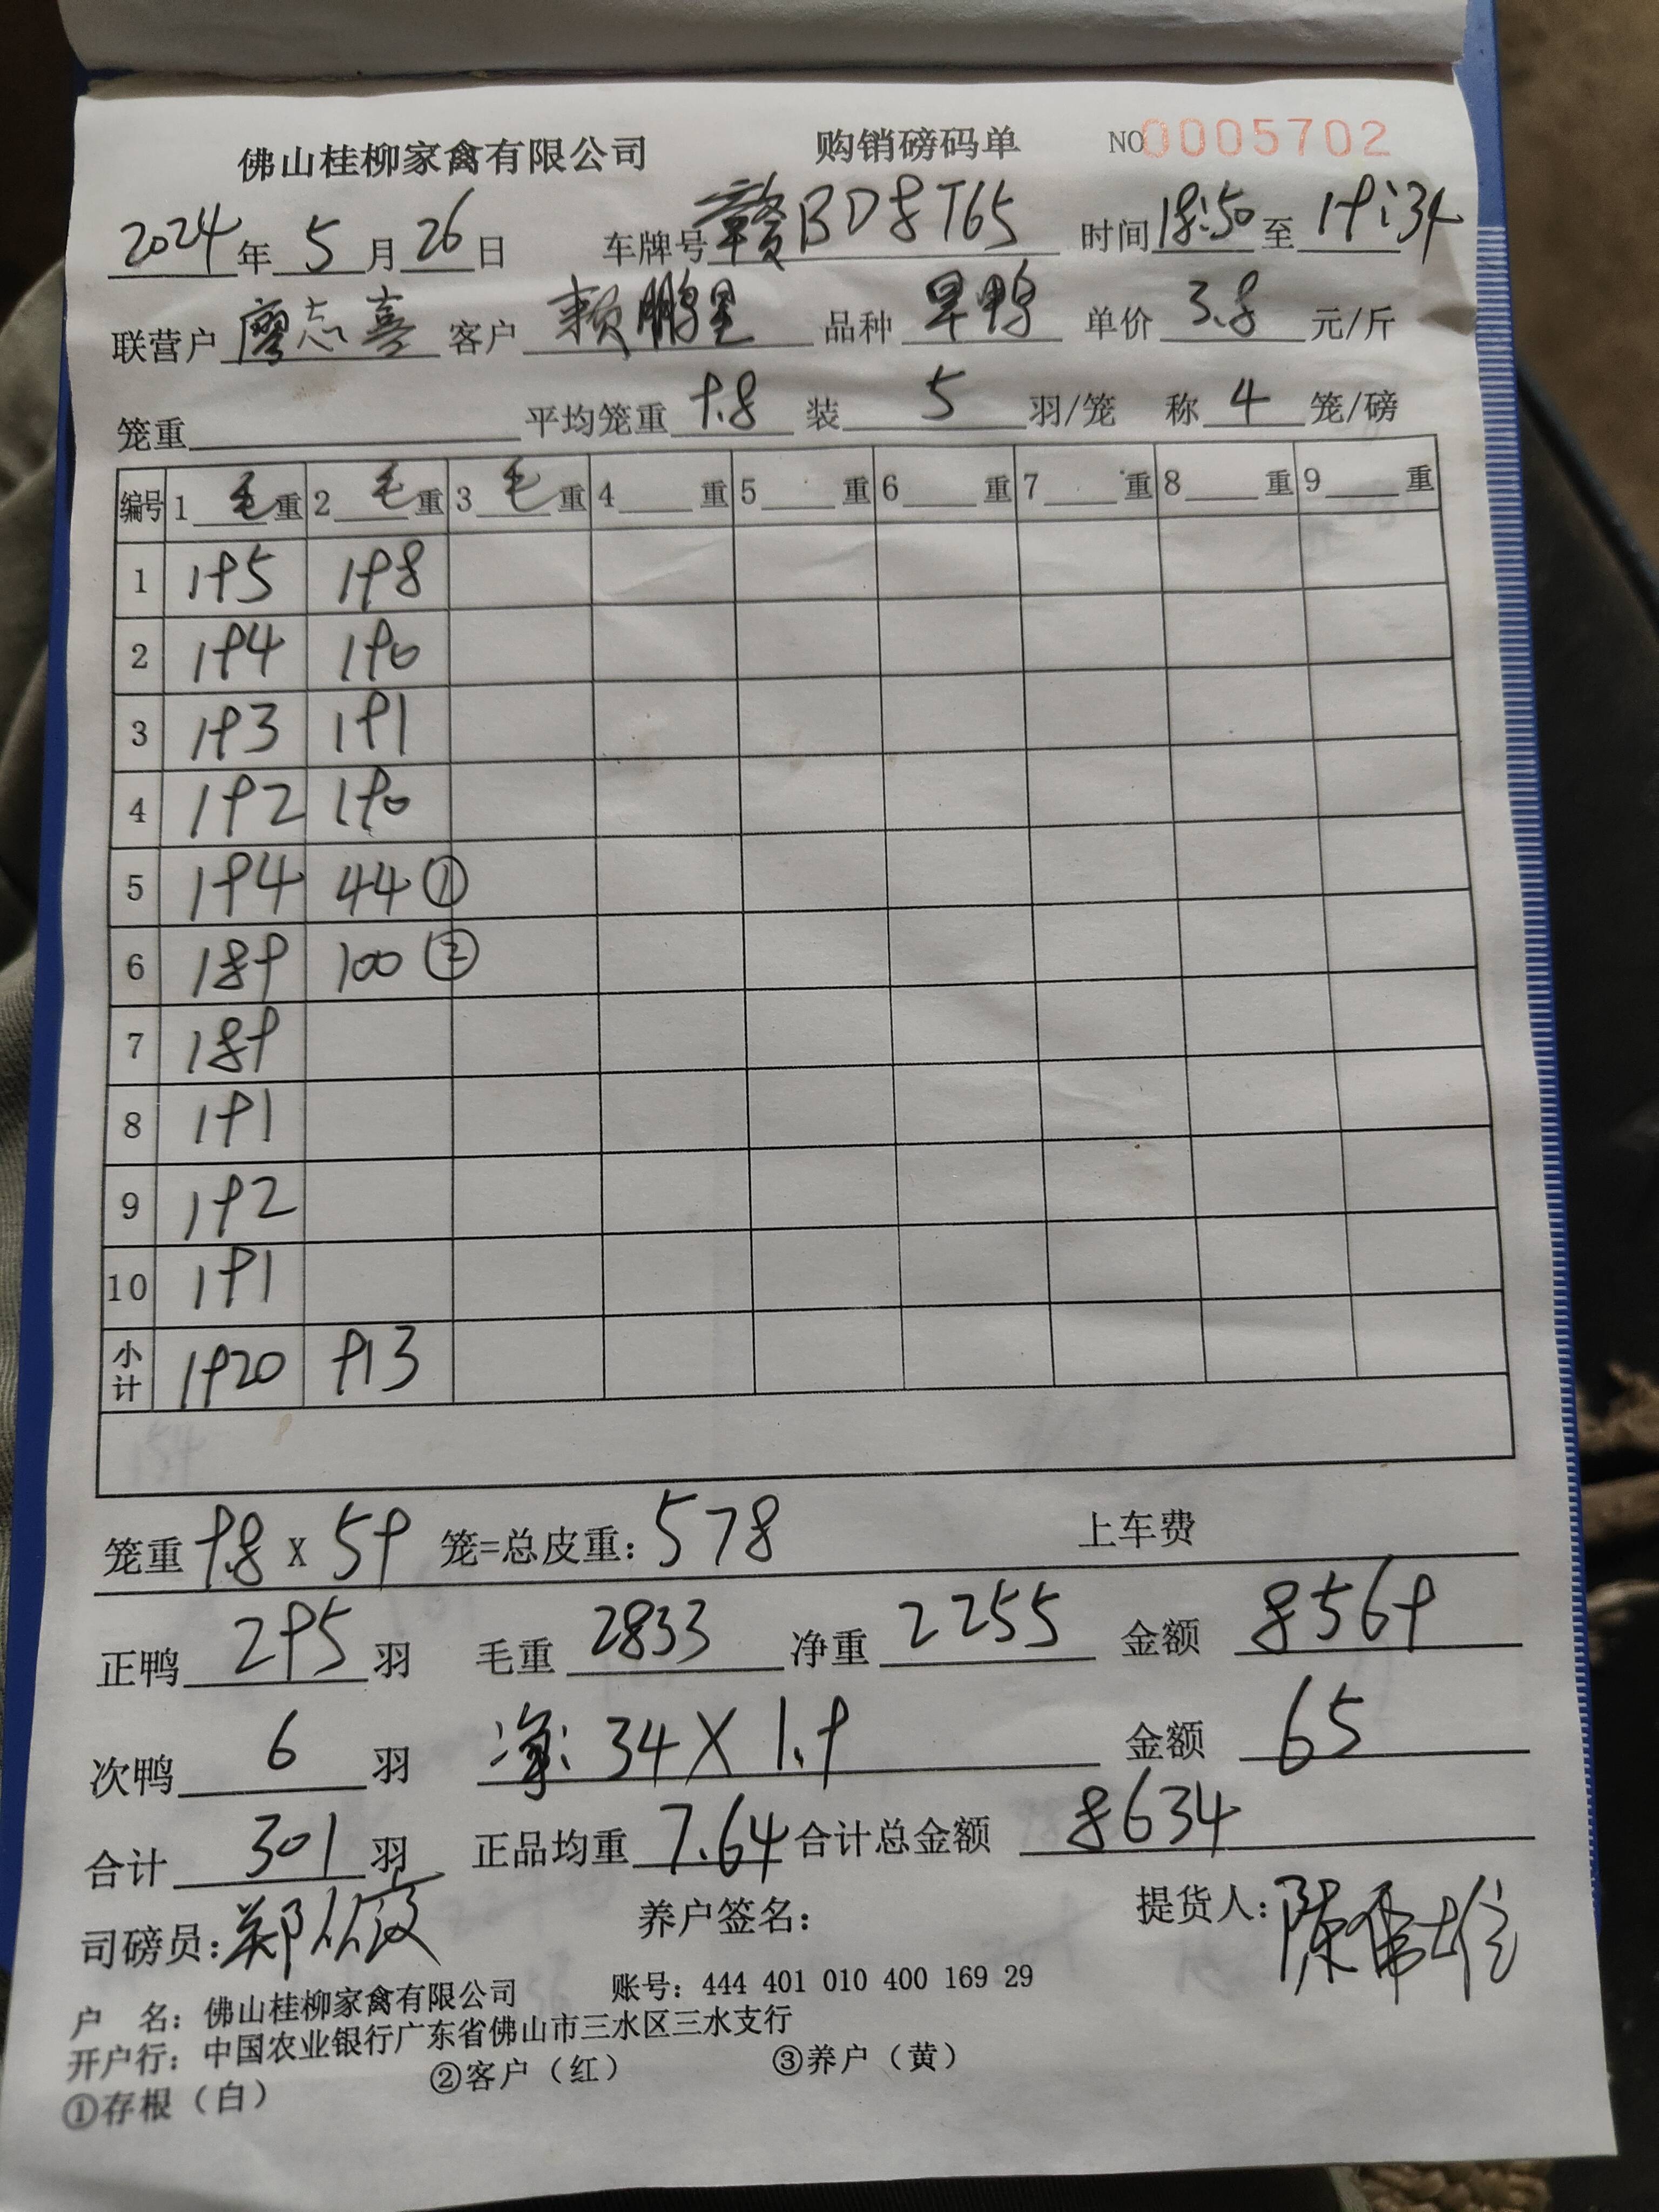 佛山桂柳家禽有限公司 购销磅码单 NO 0005702
2024年5月26日 车牌号赣BD8T65 时间18:50至19:34
联营户廖志喜 客户赖鹏里 品种旱鸭 单价3.8元/斤
笼重 平均笼重9.8 装5羽/笼 称4笼/磅
编号 1毛重 2毛重 3毛重 4重 5重 6重 7重 8重 9重
1 195 198
2 194 190
3 193 191
4 192 190
5 194 44①
6 189 100②
7 189
8 191
9 192
10 191
小计 1920 913
笼重9.8x59笼=总皮重:578 上车费
正鸭295羽 毛重2833 净重2255 金额8569
次鸭6羽 净:34X1.9 金额65
合计301羽 正品均重7.64 合计总金额8634
司磅员:郑 养户签名: 提货人:陈雄
户 名:佛山桂柳家禽有限公司 账号:444 401 010 400 169 29
开户行:中国农业银行广东省佛山市三水区三水支行
①存根(白) ②客户(红) ③养户(黄)